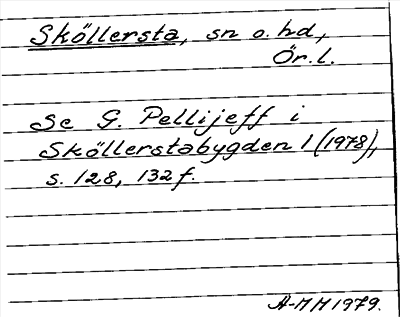 Sköllersta, sn o. hd,
Ör. l.
Se G. Pellijeff i
Sköllerstabygden 1 (1978),
s. 128, 132 f.
A-MH 1979.